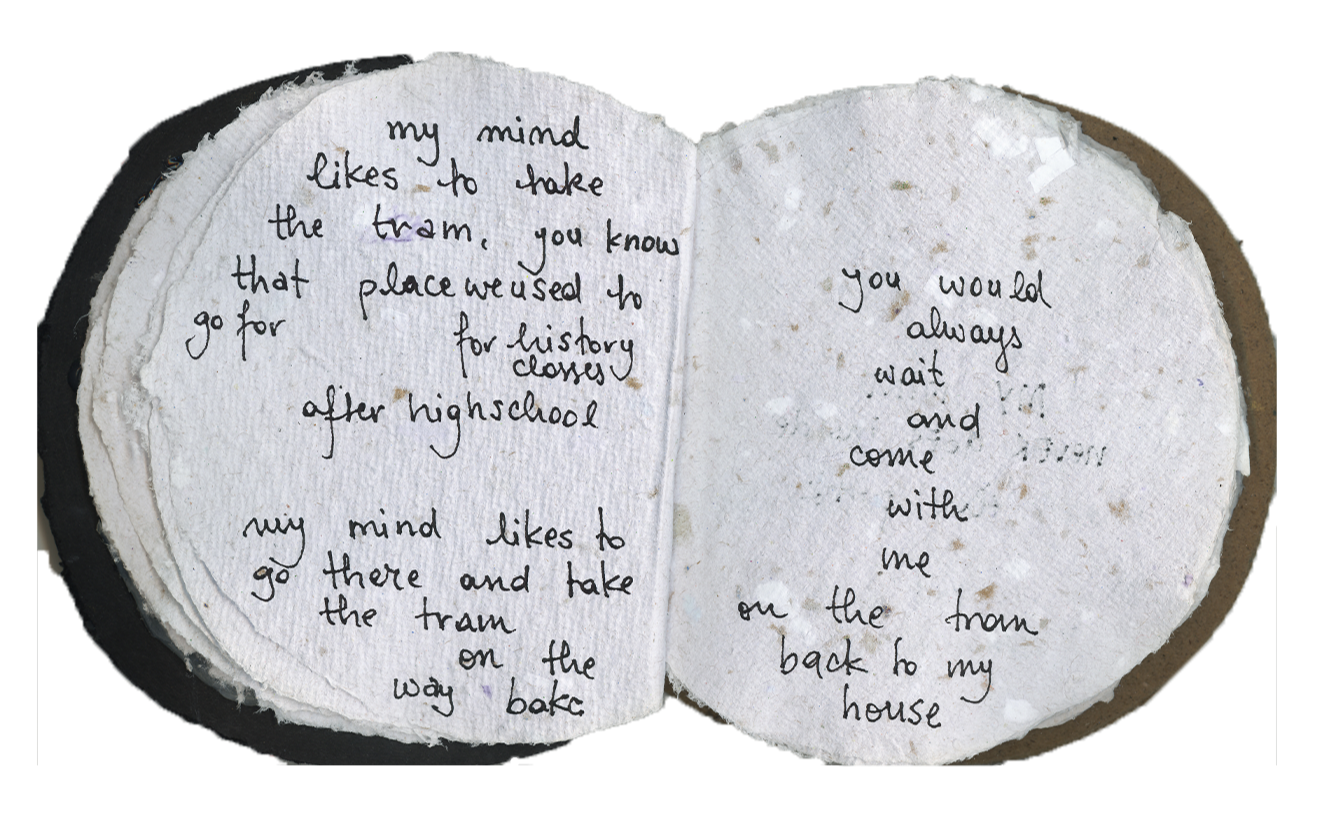 my mind
likes to take
the tram, you know
that place we used to
go for for history
classes
after highschool
my mind likes to
go there and take
the tram
on the
way bakc
you would
always
wait
and
come
with
me
on the tram
back to my
house